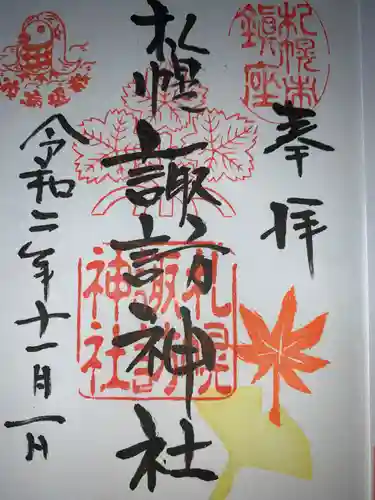 札幌市
鎮座
奉拝
札幌諏訪神社
札幌
諏訪
神社
令和二年十一月一日